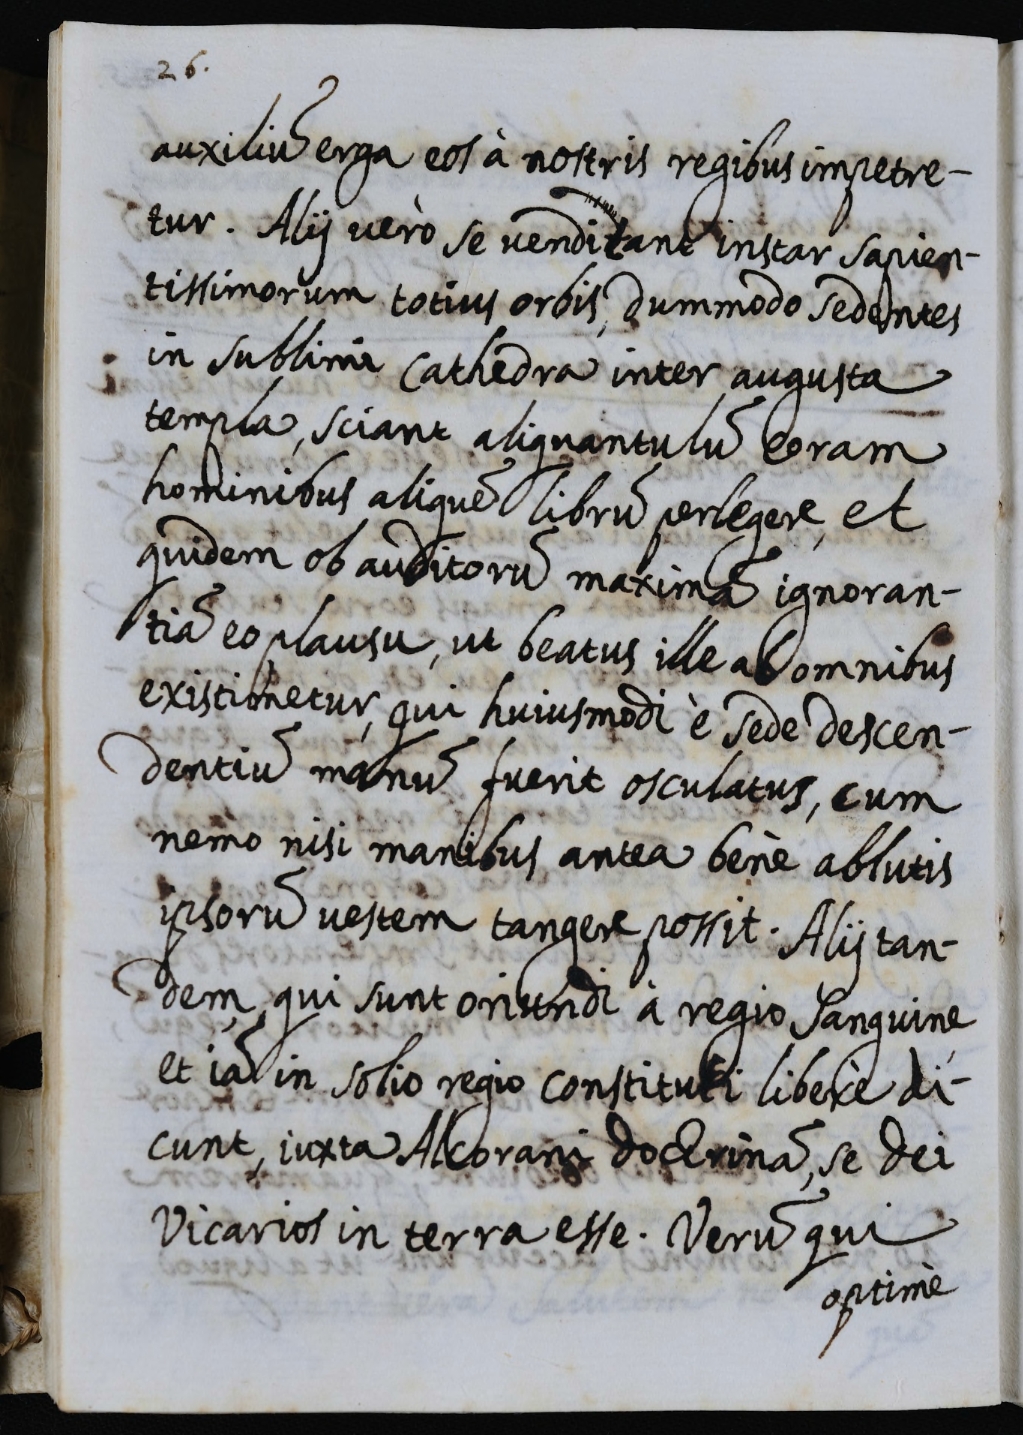 26.
auxiliũ erga eos à nostris regibus impetre-
tur. Alij verò se venditant instar sapien-
tissimorum totius orbis, dummodo sedentes
in sublimi Cathedra inter augusta
templa, sciant aliquantulũ coram
hominibus aliquẽ librũ perlegere, et
quidem ob auditorũ maximã ignoran-
tiã eo plausu, ut beatus ille ab omnibus
existimetur, qui huiusmodi è sede descen-
dentiũ manũ fuerit osculatus, cum
nemo nisi manibus antea bènè ablutis
ipsorũ vestem tangere possit. Alij tan-
dem, qui sunt oriundi à regio Sanguine,
et iã in solio regio constituti liberè di-
cunt, iuxta Alcorani doctrinã, se Dei
Vicarios in terra esse. Verũ qui
optimè